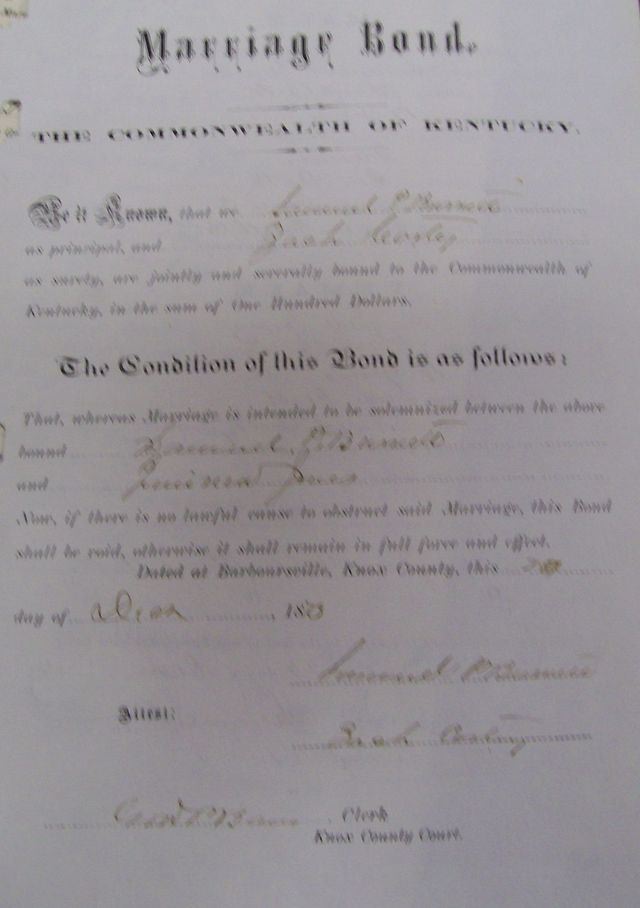 Marriage Bond.
THE COMMONWEALTH OF KENTUCKY.
Be it Known, that we Samuel P Burnett
as principal, and Zach
as surety, are jointly and severally bound to the Commonwealth of
Kentucky, in the sum of One Hundred Dollars.
The Condition of this Bond is as follows:
That, whereas Marriage is intended to be solemnized between the above
bound Samuel P Burnett
and Jones
Now, if there is no lawful cause to obstruct said Marriage, this Bond
shall be void, otherwise it shall remain in full force and effect.
Dated at Barboursville, Knox County, this
day of 187
Samuel P Burnett
Attest:
Zach
Clerk
Knox County Court.